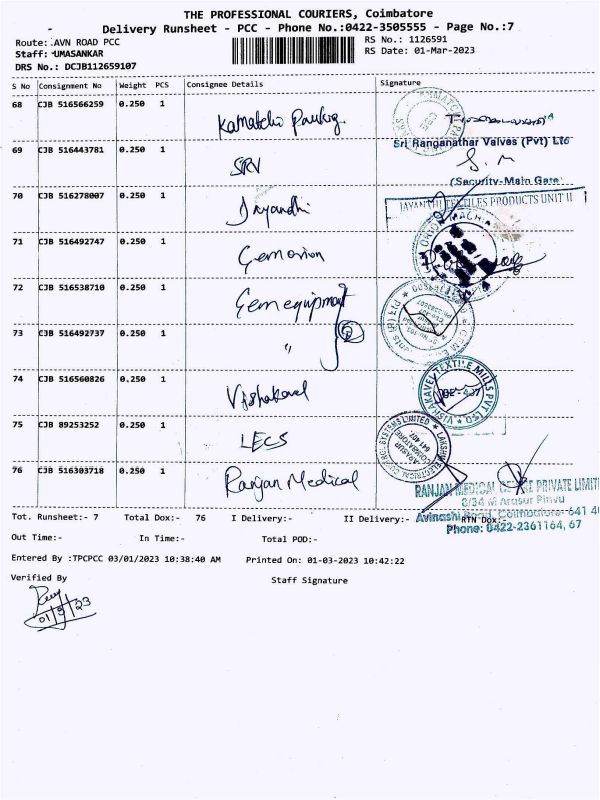 THE PROFESSIONAL COURIERS, Coimbatore
Delivery Runsheet - PCC - Phone No.:0422-3505555 - Page No.:7
Route: AVN ROAD PCC
RS No.: 1126591
Staff: UMASANKAR
RS Date: 01-Mar-2023
DRS No.: DCJB112659107
S No Consignment No Weight PCS Consignee Details Signature
68 CJB 516566259 0.250 1
Sri Ranganathar Valves (Pvt) Ltd
69 CJB 516443781 0.250 1 SRV S. M
(Security-Main Gate)
70 CJB 516278007 0.250 1
JAYANTHI TEXTILES PRODUCTS UNIT II
71 CJB 516492747 0.250 1 Gem orion
ORION MACH
72 CJB 516538710 0.250 1 Gem equipment
73 CJB 516492737 0.250 1 "
2
74 CJB 516560826 0.250 1 Vishakavel
VISHAKAVEL TEXTILE MILLS PVT LTD
75 CJB 89253252 0.250 1 LECS
LAKSHMI ELECTRICAL CONTROL SYSTEMS LIMITED
ARASUR
COIMBATORE
641 407
76 CJB 516303718 0.250 1 Ranjan Medical
RANJAN MEDICAL PRIVATE LIMIT
8/34 Arasur Pirivu
Avinashi Road, Coimbatore-641 4
Phone: 0422-2361164, 67
Tot. Runsheet:- 7 Total Dox:- 76 I Delivery:- II Delivery:- RTN Dox:-
Out Time:- In Time:- Total POD:-
Entered By :TPCPCC 03/01/2023 10:38:40 AM Printed On: 01-03-2023 10:42:22
Verified By Staff Signature
01/3/23